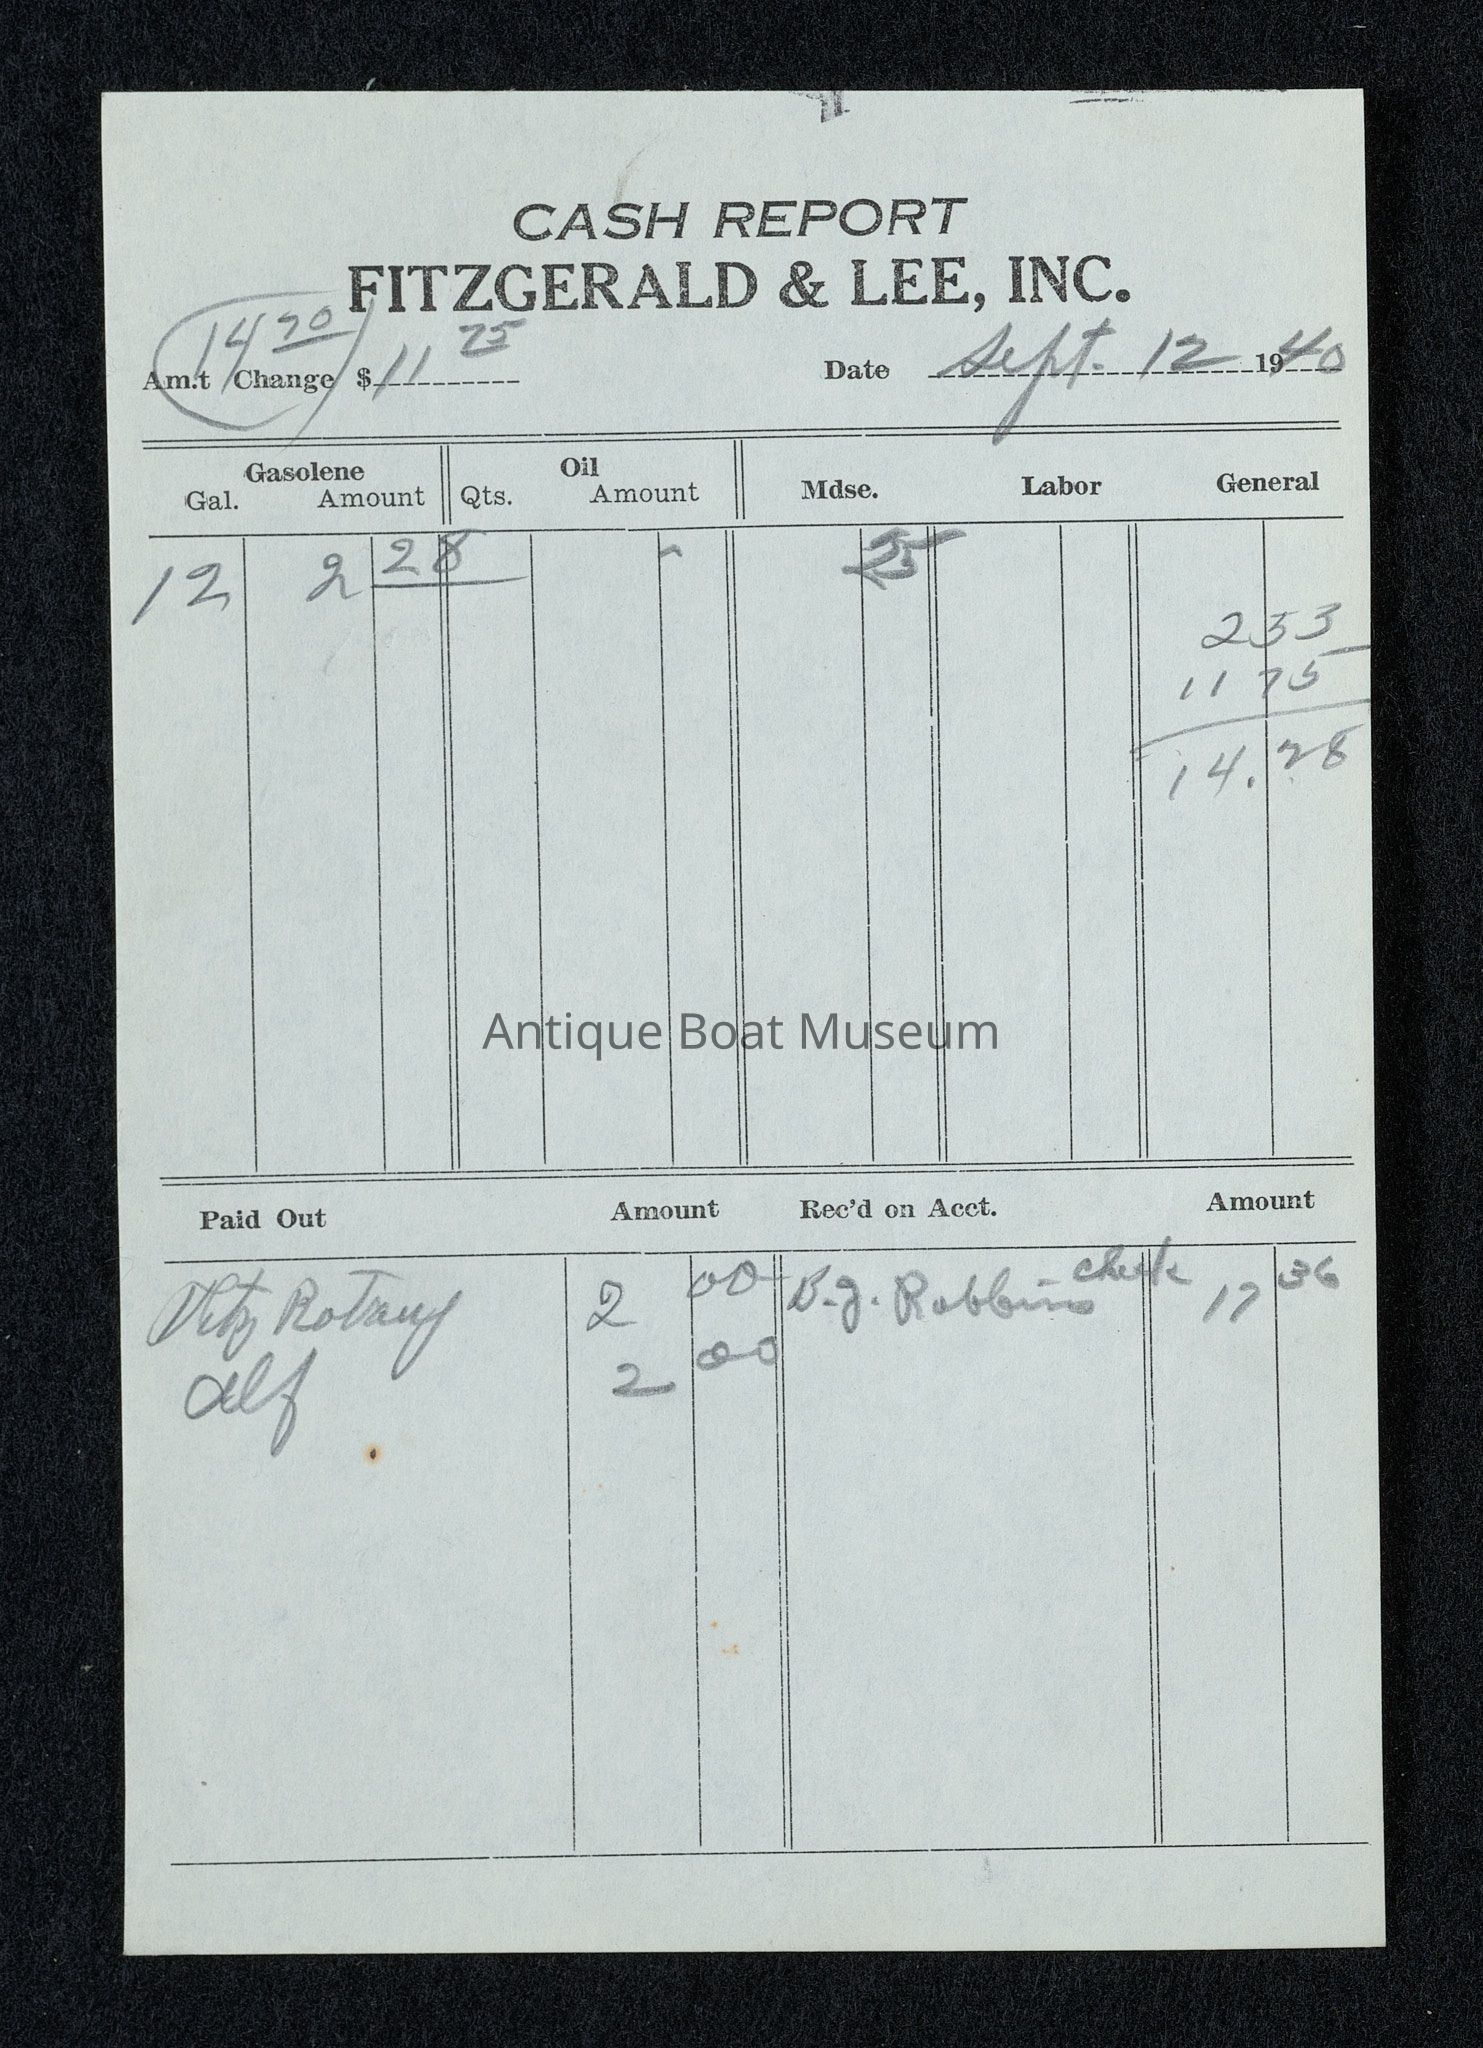 CASH REPORT
FITZGERALD & LEE, INC.
14 70
Am.t Change $ 11 75
Date Sept. 12 1940
Gasolene Oil
Gal. Amount Qts. Amount Mdse. Labor General
12 2 28 - 25
2 53
11 75
14.28
Antique Boat Museum
Paid Out Amount Rec'd on Acct. Amount
Fitz Rotary 2 00 B.J. Robbins check 17 36
Alf 2 00